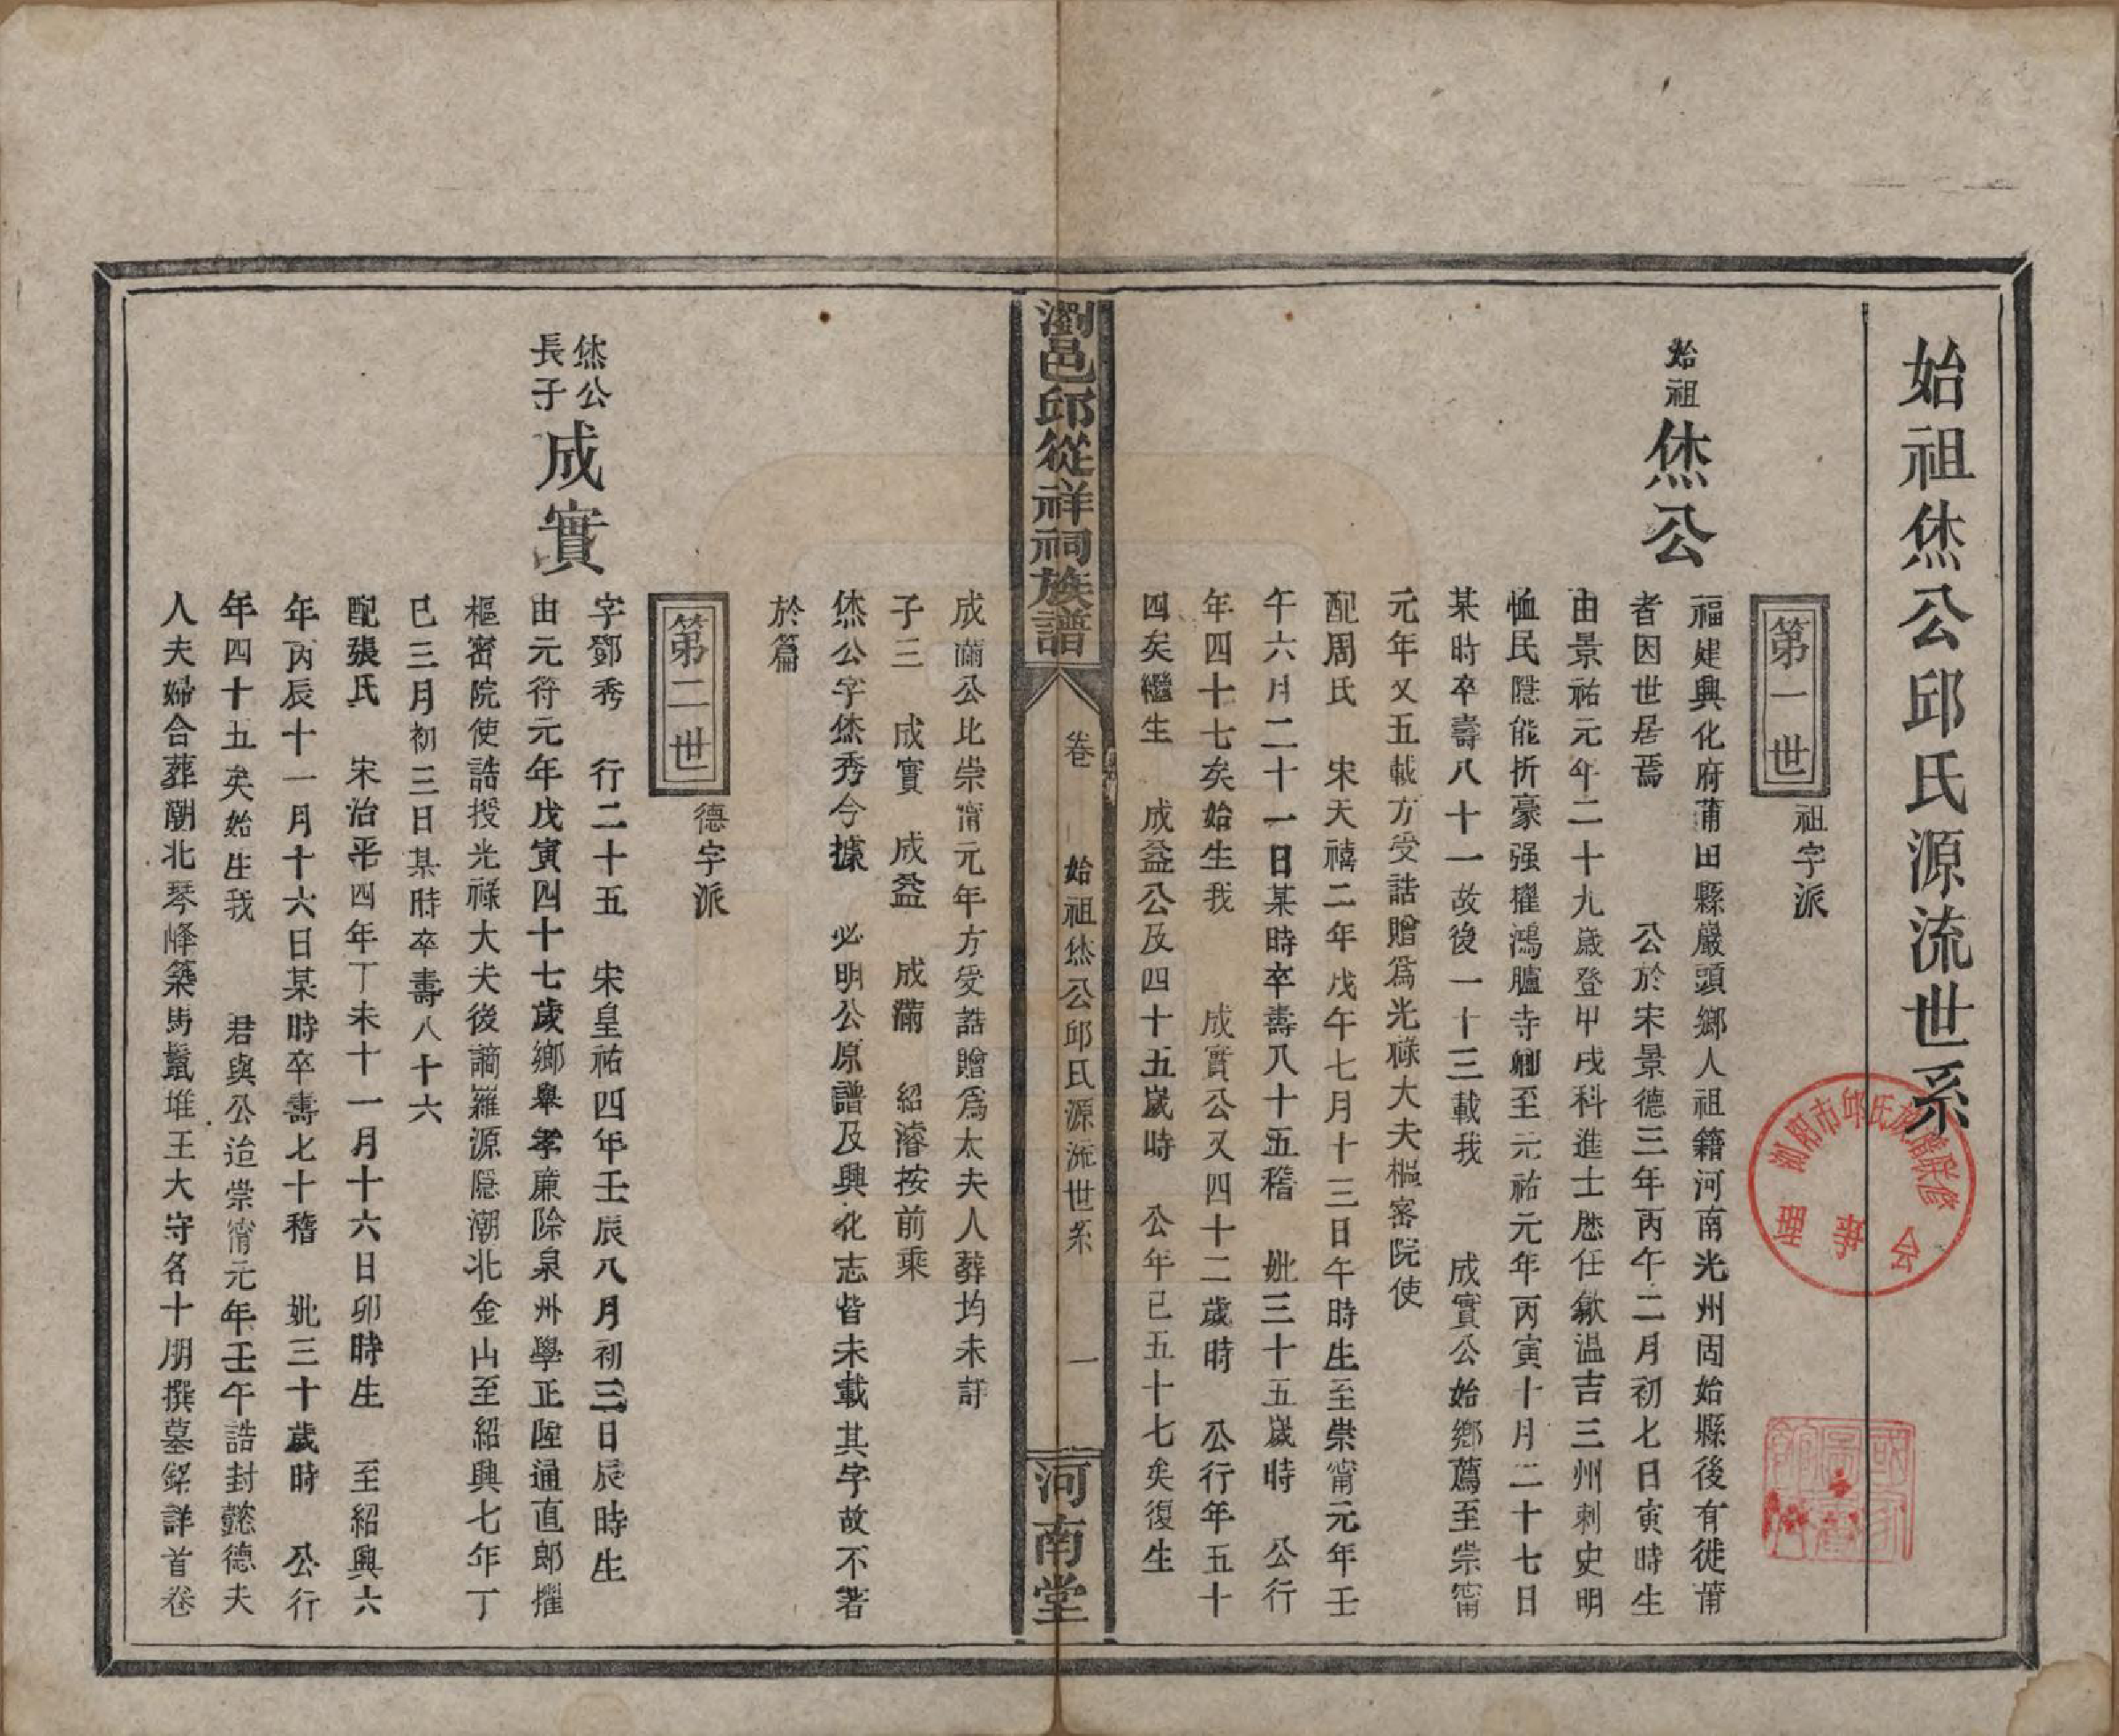 始祖烋公邱氏源流世系
第一世
祖字派
始祖烋公
福建興化府莆田縣巖頭鄉人祖籍河南光州固始縣後有徙莆
者因世居焉　公於宋景德三年丙午二月初七日寅時生
由景祐元年二十九歲登甲戌科進士歷任歙温吉三州刺史明
恤民隱能折豪强擢鴻臚寺卿至元祐元年丙寅十月二十七日
某時卒壽八十一故後一十三載我　成實公始鄉薦至崇甯
元年又五載方受誥贈爲光祿大夫樞密院使
配周氏　宋天禧二年戊午七月十三日午時生至崇甯元年壬
午六月二十一日某時卒壽八十五稽　妣三十五歲時　公行
年四十七矣始生我　成實公又四十二歲時　公行年五十
四矣繼生　成益公及四十五歲時　公年已五十七矣復生
瀏邑邱從祥祠族譜
卷　始祖烋公邱氏源流世系　一
河南堂
成滿公比崇甯元年方受誥贈爲太夫人葬均未詳
子三　成實　成益　成滿　紹濬按前乘
烋公字烋秀今據　必明公原譜及興化志皆未載其字故不著
於篇
第二世
德字派
烋公
長子
成實
字鄧秀　行二十五　宋皇祐四年壬辰八月初三日辰時生
由元符元年戊寅四十七歲鄉舉孝廉除泉州學正陞通直郎擢
樞密院使誥授光祿大夫後謫羅源隱潮北金山至紹興七年丁
巳三月初三日某時卒壽八十六
配張氏　宋治平四年丁未十一月十六日卯時生　至紹興六
年丙辰十一月十六日某時卒壽七十稽　妣三十歲時　公行
年四十五矣始生我　君與公迨崇甯元年壬午誥封懿德夫
人夫婦合葬潮北琴峰築馬鬣堆王大守名十朋撰墓銘詳首卷